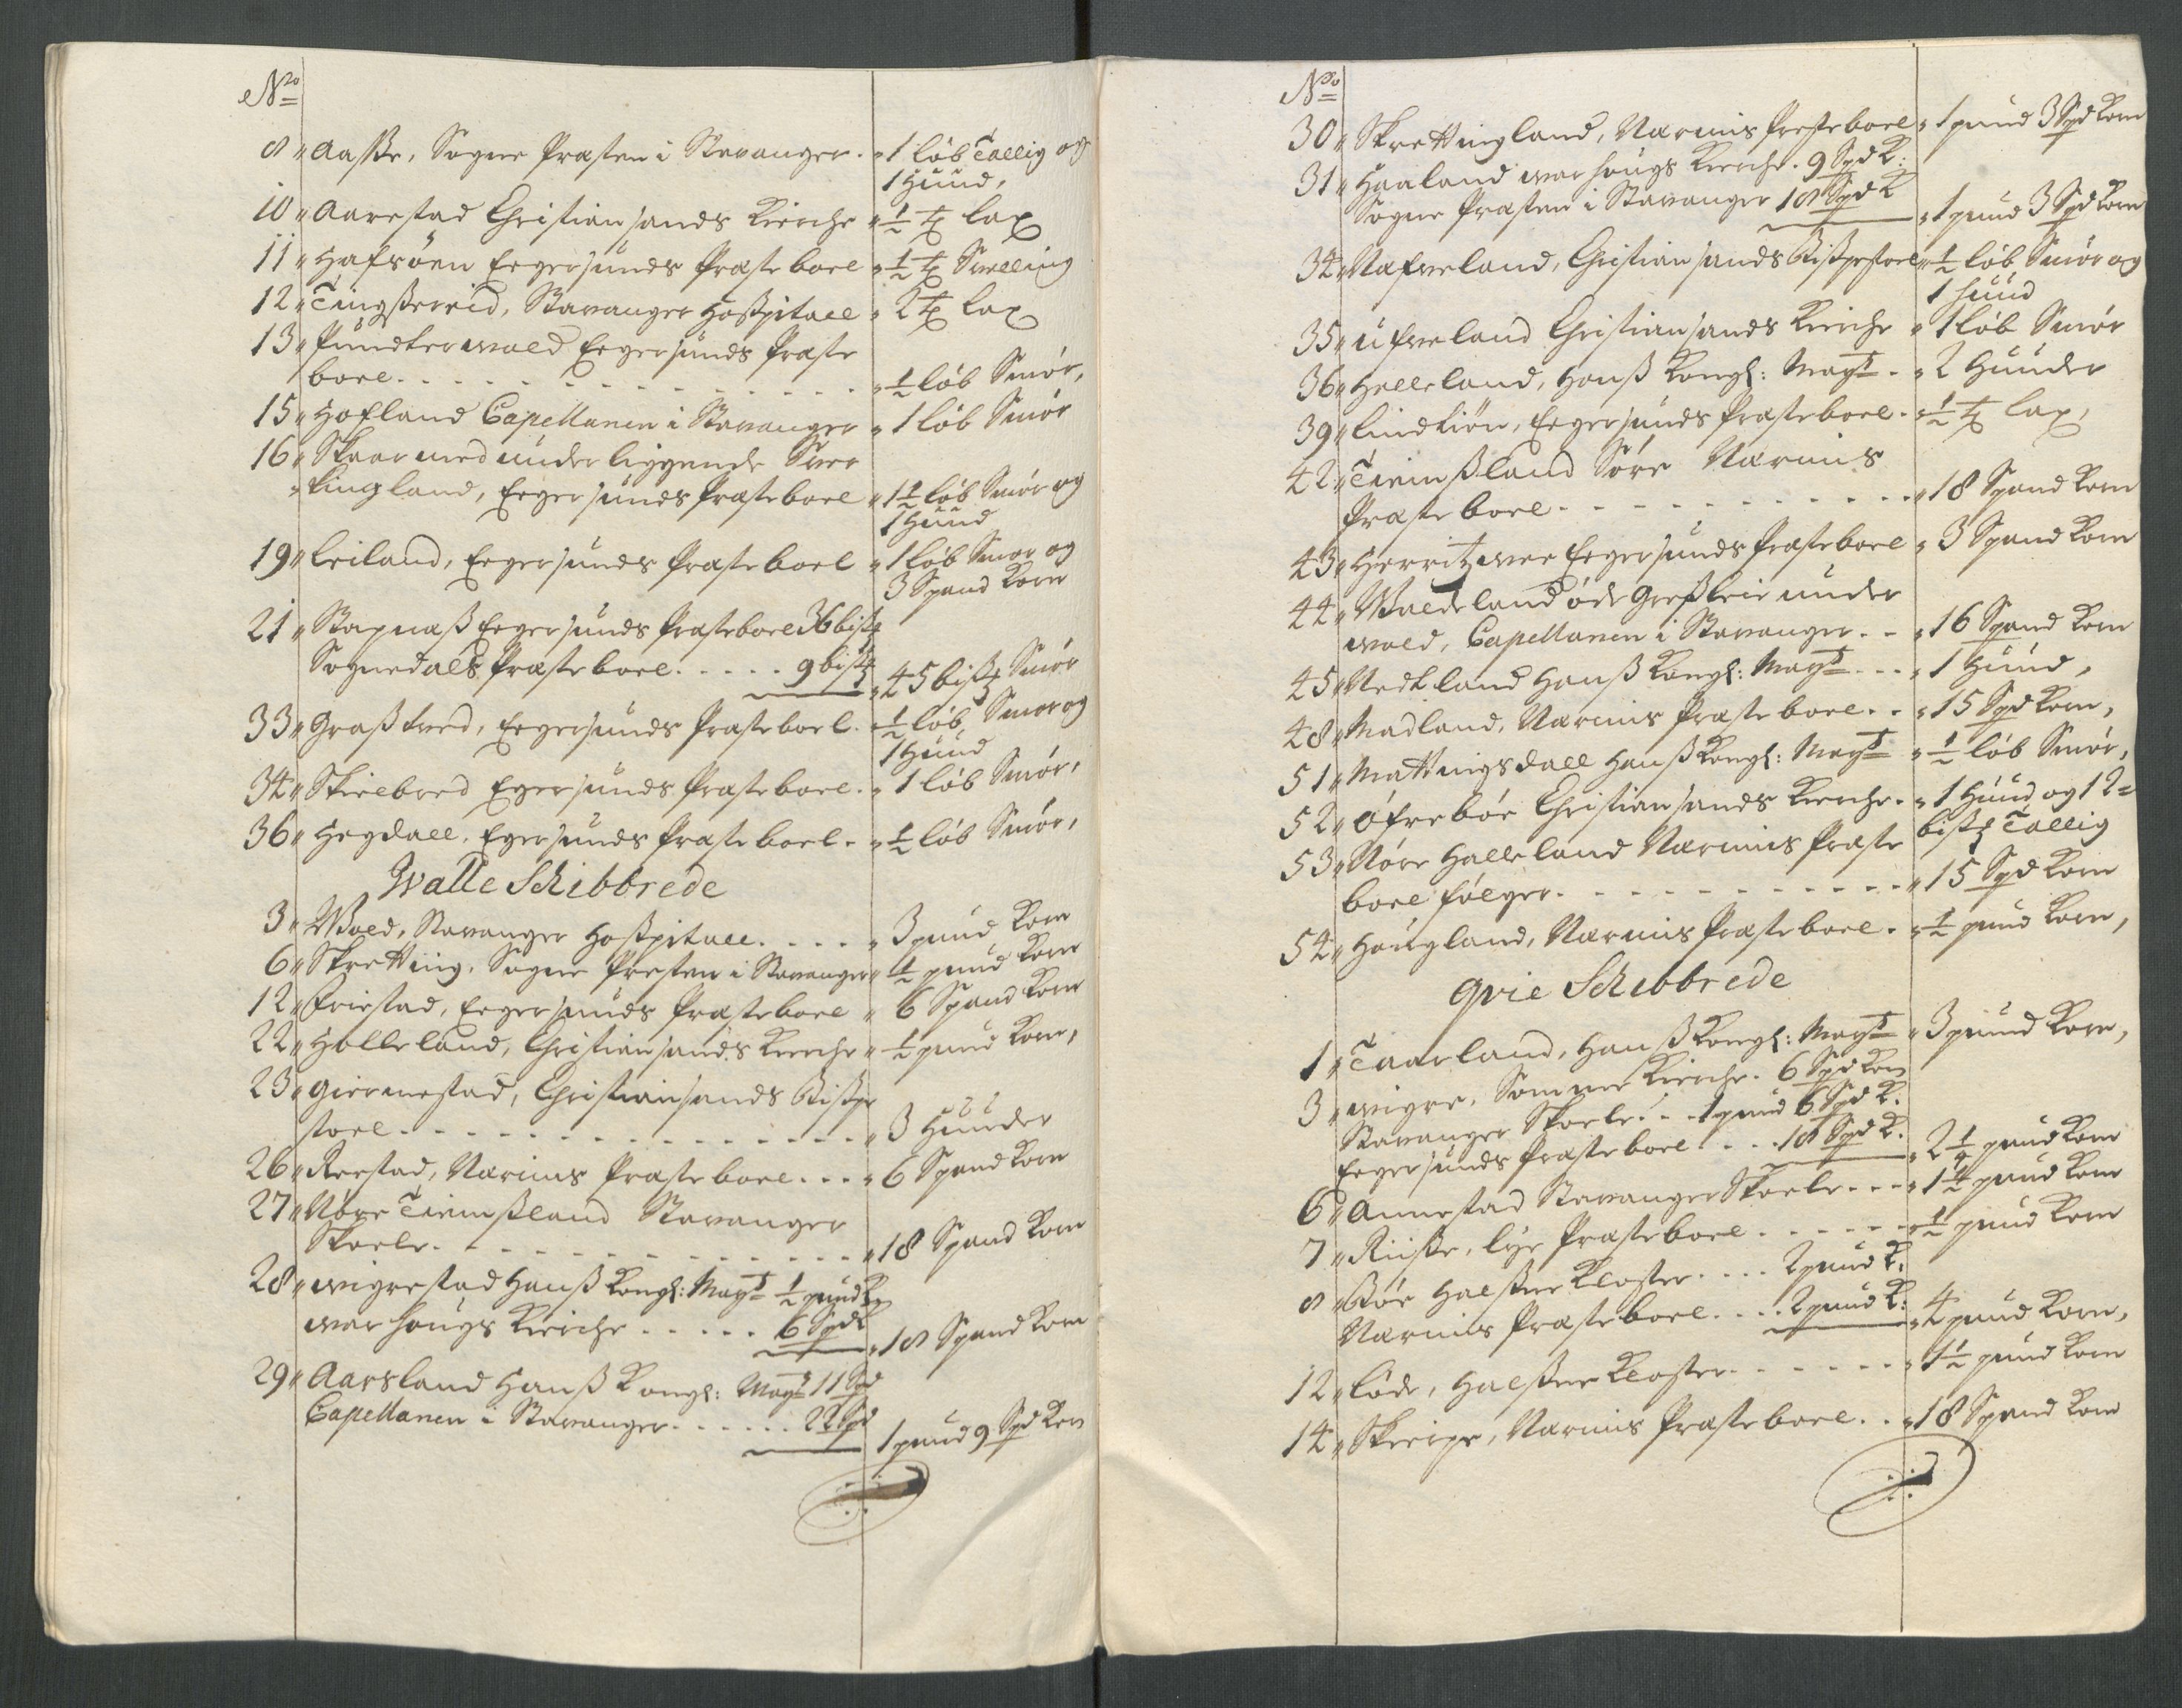 No
8 " Aasse, Sogne Præsten i Stavanger. " 1 løb Tallig og
1 Huud,
10 " Aarestad Christiansands Kirche " ½ tx Lax
11 " Hafsøen Eegersunds Præsteboel " ½ tx Smelling
12 " Tingssereid, Stavanger Hosspitall " 2 tx Lax
13 " Pundtervold Eegersunds Præste
boel. - - - " ½ løb Smør,
15 " Hofland Capellanen i Stavanger " 1 løb Smør
16 " Skaar med underliggende Sver
" tingland, Eegersunds Præsteboel " 1½ løb Smør og
1 Huud
19 " Leiland, Eegersunds Præsteboel " 1 løb Smør og
3 Spand Korn
21 " Stapnæss Eegersunds Præsteboel 36 bissm
Sognedals Præsteboel. - - - 9 bissm " 45 bissm Smør
33 " Grasstved, Eegersunds Præsteboel. " ½ løb Smør og
1 Huud
34 " Skielbred Egersunds Præsteboel. " 1 løb Smør,
36 " Hegdall, Egersunds Præsteboel. " ½ løb Smør,
Walle Schibbrede
3 " Wold, Stavanger Hosspitall. - - - " 3 pund Korn
6 " Skretting, Sogne Presten i Stavanger " ½ pund Korn
12 " Friestad, Eegersunds Præsteboel " 6 Spand Korn
22 " Holleland, Christiansands Kirche " ½ pund Korn,
23 " Giermestad, Christiansands Bisspe
stoel. - - - " 3 Huuder
26 " Reestad, Nærims Præsteboel. - - - " 6 Spand Korn
27 " Nøre Tiemssland Stavanger
Skoele. - - - " 18 Spand Korn
28 " Wigrestad Hanss Kongl: Mayt ½ pund K
Warhougs Kirche. - - - 6 Spd K " 18 Spand Korn
29 " Aarsland Hanss Kongl: Mayt 11 Spd
Capellanen i Stavanger. - - - 22 Spd 1 pund 9 Spd Korn
No
30 " Skrettingland, Nærims Presteboel " 1 pund 3 Spd Korn
31 " Haaland Warhougs Kirche. 9 Spd K:
Sogne Præsten i Stavanger 18 Spd K " 1 pund 3 Spd Korn
34 " Nafveland, Christiansands Bisspestoel " ½ løb Smør og
1 huud
35 " Ufveland Christiansands Kirche " 1 løb Smør
36 " Helleland, Hanss Kongl: Mayt - " 2 Huuder
39 " Lindtiøn, Eegersunds Præsteboel. " ½ tx Lax,
42 " Tiemssland Søre Nærims
Præsteboel. - - - " 18 Spand Korn
43 " Herritzvee Eegersunds Præsteboel " 3 Spand Korn
44 " Waldeland øde Gressleie under
Wold, Capellanen i Stavanger. - - " 16 Spand Korn
45 " Nedtland Hanss Kongl: Mayt - - - " 1 Huud,
48 " Madland, Nærims Præsteboel. - " 15 Spd Korn,
51 " Mattingsdall Hanss Kongl: Mayt " ½ løb Smør,
52 " Øfrebøe Christiansands Kirche. - " 1 Huud og 12
bissm Tallig
53 " Nøre Halleland Nærims Præste
boel følger. - - - " 15 Spd Korn
54 " Hougland, Nærims Præsteboel. " ½ pund Korn,
Qvie Schibbrede
1 " Taarland, Hanss Kongl: Mayt " 3 pund Korn,
3 " Wigre, Somme Kirche. 6 Spd Korn
Stavanger Skoele. - - 1 pund 6 Spd K.
Eegersunds Præsteboel. - - 18 Spd K. " 2¼ pund Korn
6 " Annestad Stavanger Skoele. - - - " 1½ pund Korn
7 " Riisse, Lye Præsteboel. - - - " ½ pund Korn
8 " Bøe Halssne Kloster. - - - 2 pund K.
Nærims Præsteboel. - - - 2 pund K: " 4 pund Korn,
12 " Løde, Halssne Kloster. - - - " 1½ pund Korn
14 " Skeeipe, Nærims Præsteboel. - - " 18 Spand Korn